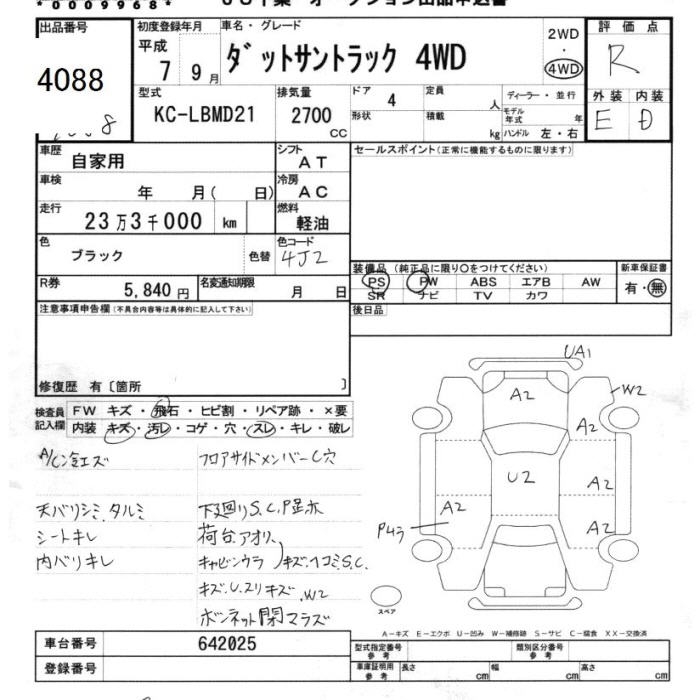 出品番号
4088
初度登録年月
平成
7 9月
車名・グレード
ダットサントラック 4WD
2WD
・
4WD
評価点
R
型式
KC-LBMD21
排気量
2700
CC
ドア 4
形状
定員 人
積載 kg
ディーラー・並行
モデル年式 年
ハンドル 左・右
外装 内装
E D
車歴
自家用
シフト
AT
車検
年 月( 日)
冷房
AC
走行
23万3千000 km
燃料
軽油
色
ブラック
色替
色コード
4J2
R券
5,840円
名変通知期限
月 日
セールスポイント(正常に機能するものに限ります)
装備品 (純正品に限り○をつけてください)
PS PW ABS エアB AW
SR ナビ TV カワ
新車保証書
有・無
後日品
注意事項申告欄(不具合内容等は具体的に記入して下さい)
修復歴 有〔箇所 〕
検査員記入欄
FW キズ・飛石・ヒビ割・リペア跡・×要
内装 キズ・汚レ・コゲ・穴・スレ・キレ・破レ
フロアサイドメンバーC穴
天バリシミ、タルミ
下廻リS.C.P
シートキレ
荷台アオリ、
内バリキレ
キャビンウラ
キズ.ヘコミ.S.C.
キズ.U.スリキズ.W2
ボンネット閉マラズ
UA1
A2
W2
A2
U2
A2
A2
A2
スペア
A-キズ E-エクボ U-凹み W-補修跡 S-サビ C-腐食 XX-交換済
車台番号
642025
登録番号
型式指定番号
参考
類別区分番号
参考
車庫証明用
参考
長さ cm
幅 cm
高さ cm